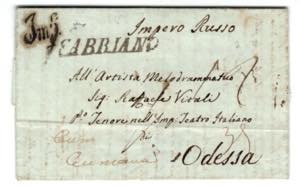 Imp.
FABRIANO
Impero Russo
All'Artista Melodrammatico
Sig: Raffaele Vitali
Po Tenore nell'Imp: Teatro Italiano
di
Odessa